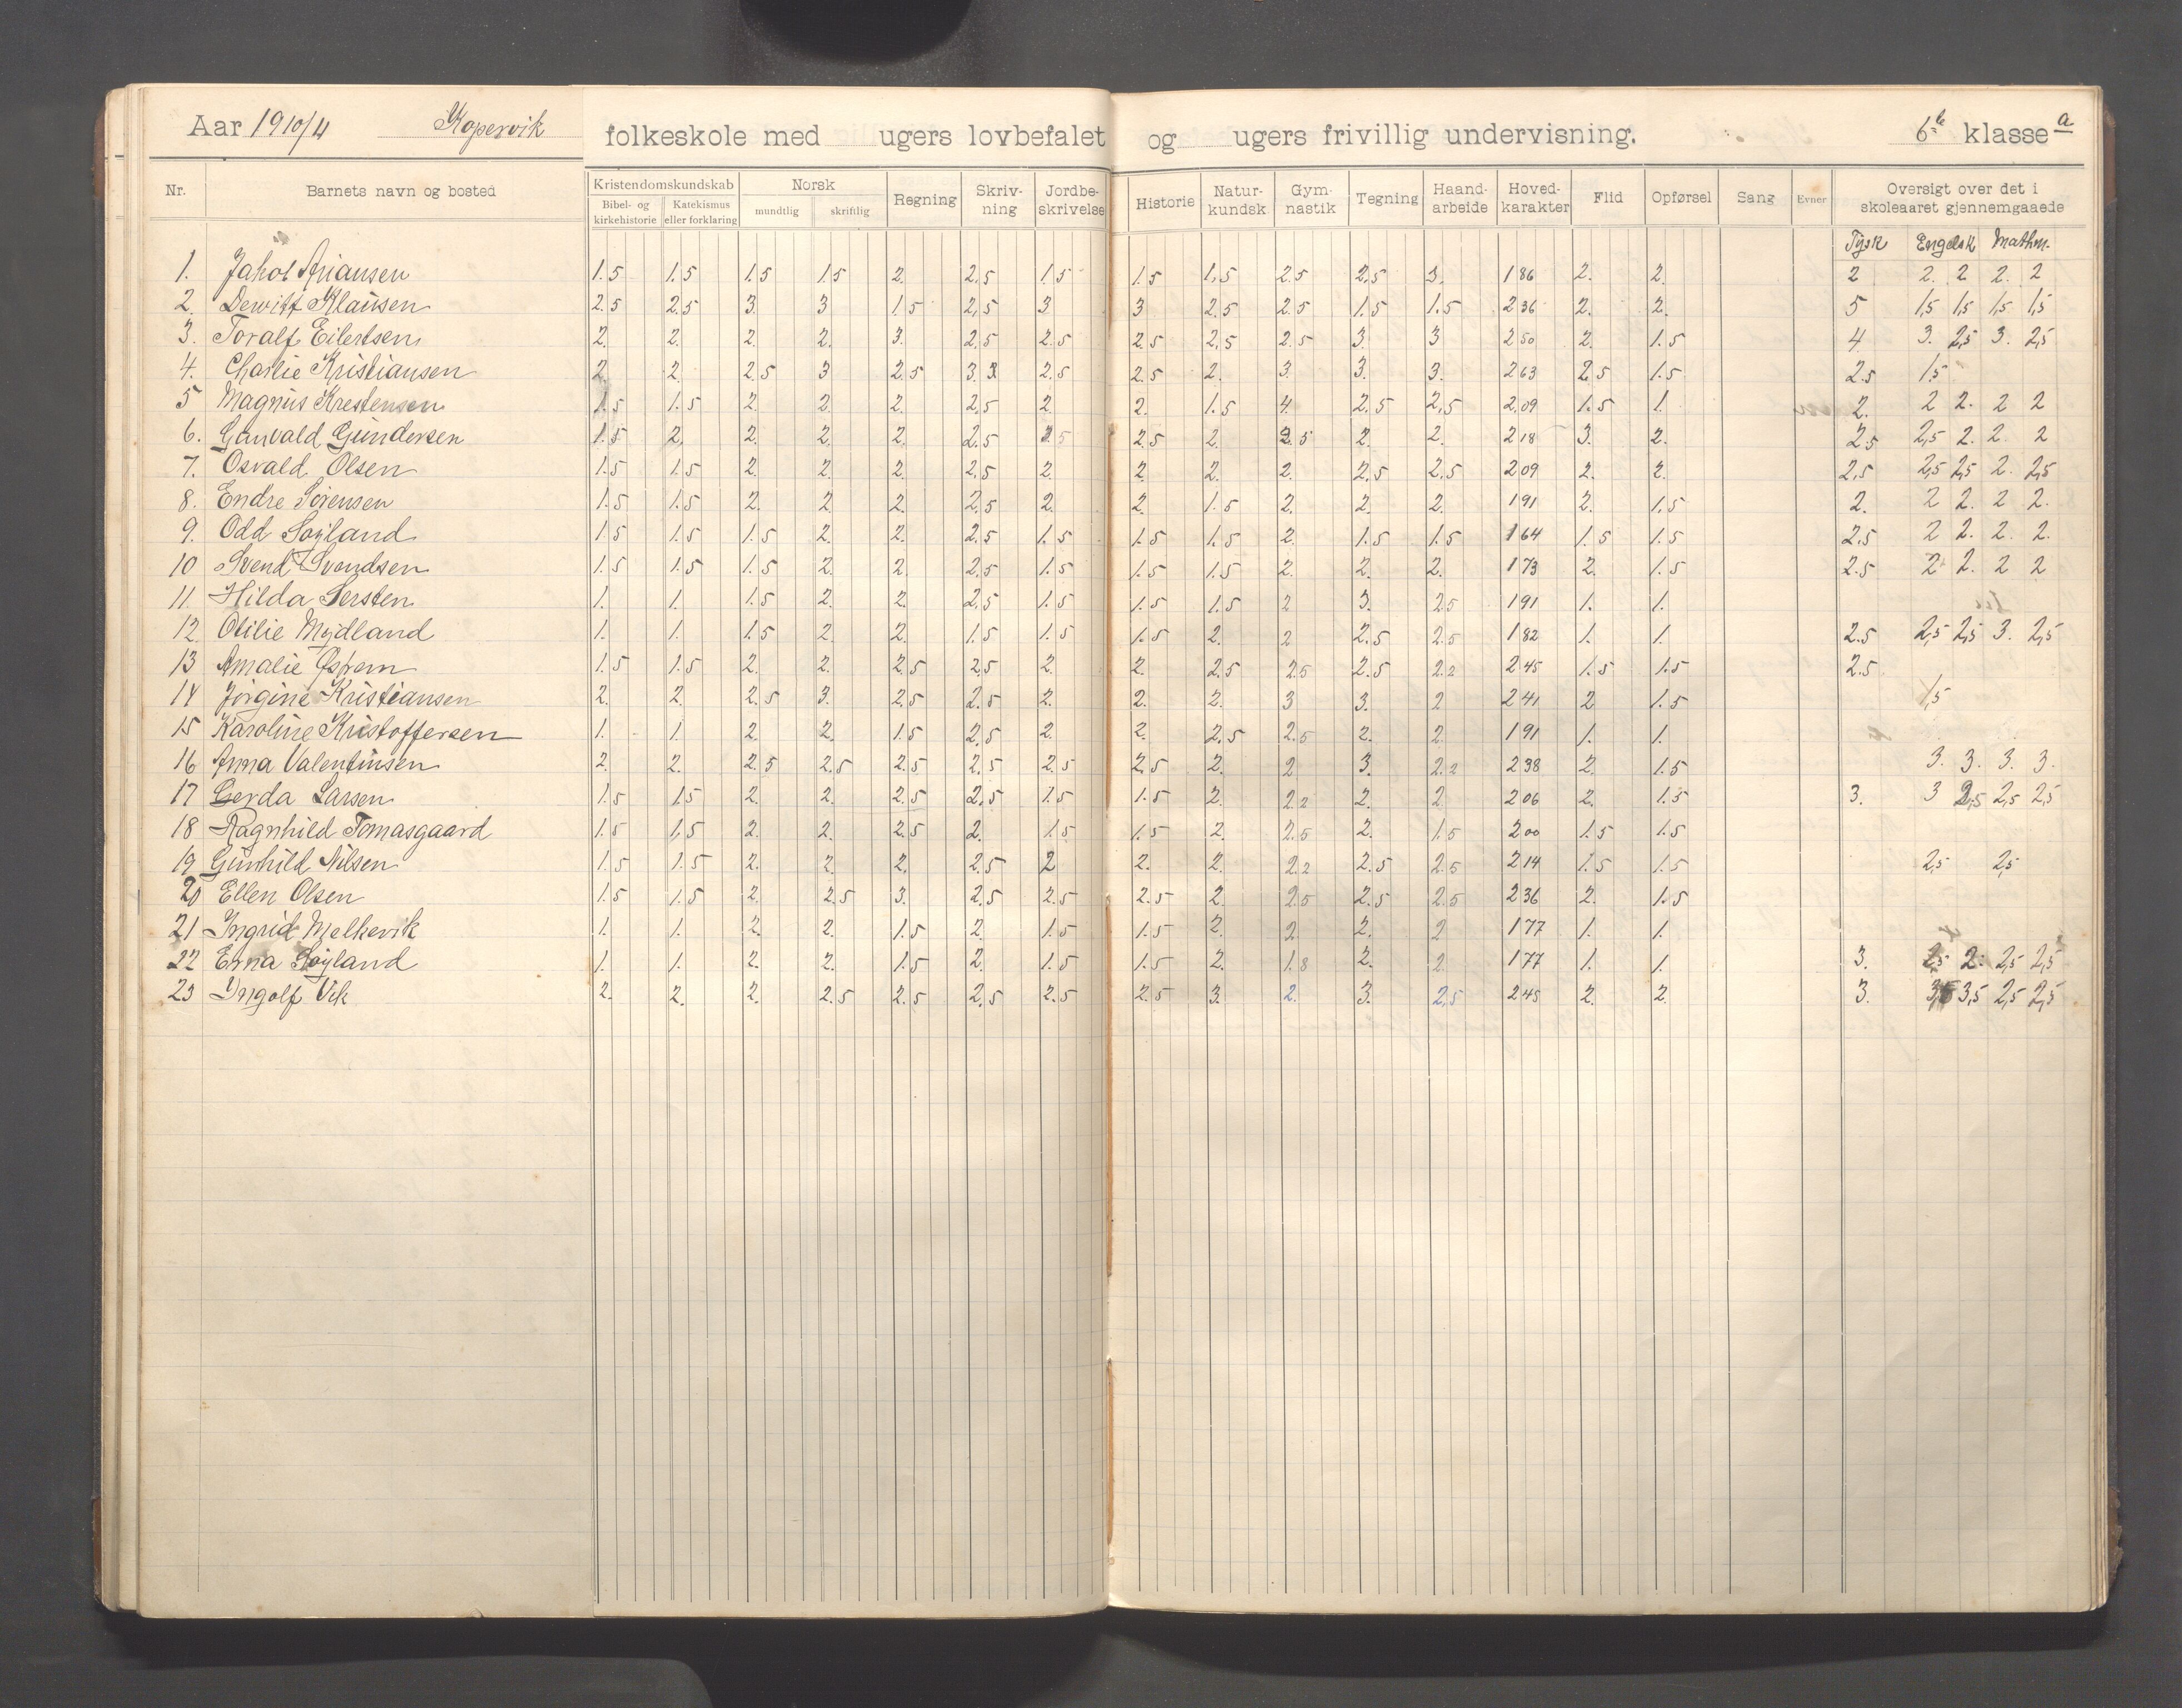 Aar 1910/11 Kopervik folkeskole med ugers lovbefalet og ugers frivillig undervisning. 6te klasse a
Nr. Barnets navn og bosted Kristendomskundskab Norsk Regning Skriv-ning Jordbe-skrivelse Historie Natur-kundsk Gym-nastik Tegning Haand-arbeide Hoved-karakter Flid Opførsel Sang Evner Oversigt over det i skoleaaret gjennemgaaede
Bibel- og kirkehistorie Katekismus eller forklaring mundtlig skriftlig
Tysk Engelsk Mathm.
1. Jakob Ariansen 1.5 1.5 1.5 1.5 2. 2,5 1.5 1.5 1,5 2.5 2,5 3. 186 2. 2. 2 2. 2 2. 2
2. Dewitt Klausen 2.5 2.5 3. 3 1.5 2,5 3 3 2.5 2.5 1.5 1.5 236 2. 2. 5 1,5 1,5 1,5 1,5
3. Toralf Eilertsen 2. 2. 2. 2. 3. 2,5 2.5 2.5 2,5 2.5 3. 3 250 2. 1.5 4. 3. 2,5 3. 2,5
4. Charlie Kristiansen 2. 2. 2.5 3 2.5 3. 3. 2.5 2.5 2. 3. 3. 3. 263 2.5 1.5 2.5 1,5
5 Magnus Krestensen 1.5 1.5 2. 2. 2. 2,5 2. 2. 1.5 4. 2.5 2,5 2,09 1.5 1. 2. 2 2. 2 2
6. Gunvald Gundersen 1.5 2. 2. 2. 2. 2.5 2.5 2.5 2. 2.5 2. 2. 218 3. 2. 2.5 2,5 2. 2. 2
7. Osvald Olsen 1.5 1.5 2. 2. 2. 2.5 2. 2. 2. 2. 2.5 2,5 209 2. 2. 2,5 2,5 2,5 2. 2,5
8. Endre Sørensen 1.5 1.5 2. 2. 2. 2,5 2. 2. 1.5 2. 2. 2. 191 2. 1.5 2. 2 2. 2 2.
9. Odd Søyland 1.5 1.5 1.5 2. 2. 2.5 1.5 1.5 1.5 2. 1.5 1.5 164 1.5 1.5 2,5 2 2. 2. 2.
10 Svend Svendsen 1.5 1.5 1.5 2. 2. 2,5 1.5 1.5 1.5 2. 2. 2. 173 2. 1.5 2.5 2 2. 2 2
11. Hilda Sersten 1. 1. 1.5 2. 2. 2,5 1.5 1.5 1.5 2 3. 2.5 191 1. 1.
12. Otilie Mydland 1. 1. 1.5 2. 2. 1.5 1.5 1.5 2. 2 2.5 2.5 182 1. 1. 2.5 2,5 2,5 3. 2,5
13 Amalie Østrem 1.5 1.5 2. 2. 2.5 2,5 2. 2. 2,5 2.5 2.5 2.2 245 1.5 1.5 2.5
14 Jørgine Kristiansen 2. 2. 2.5 3. 2.5 2.5 2. 2. 2. 3 3. 2 241 2 1.5 1,5
15 Karoline Kristoffersen 1. 1. 2. 2. 1.5 2,5 2. 2. 2,5 2.5 2. 2. 191 1. 1.
16 Anna Valentinsen 2. 2. 2.5 2.5 2.5 2.5 2.5 2,5 2. 2 3. 2.2 238 2. 1.5 3. 3. 3. 3.
17 Gerda Larsen 1.5 1.5 2. 2. 2.5 2,5 1.5 1.5 2. 2.2 2. 2. 206 2. 1.5 3. 3 2,5 2,5 2,5
18 Ragnhild Tomasgaard 1.5 1,5 2. 2. 2.5 2. 1.5 1.5 2. 2.5 2. 1.5 200 1.5 1.5
19 Gunhild Nilsen 1.5 1.5 2. 2. 2. 2.5 2 2. 2. 2.2 2.5 2.5 214 1.5 1.5 2,5 2,5
20 Ellen Olsen 1.5 1.5 2. 2.5 3. 2,5 2.5 2.5 2. 2.5 2.5 2.5 236 2. 1.5
21 Ingrid Melkevik 1. 1. 2. 2. 1.5 2. 1.5 1.5 2. 2. 2. 2 177 1. 1.
22 Erna Søyland 1. 1. 2. 2. 1.5 2. 1.5 1.5 2. 1.8 2. 2. 177 1. 1. 3. 2,5 2. 2,5 2,5
23 Ingolf Vik 2. 2. 2. 2.5 2.5 2,5 2.5 2.5 3. 2. 3. 2,5 245 2. 2. 3. 3,5 3,5 2,5 2,5